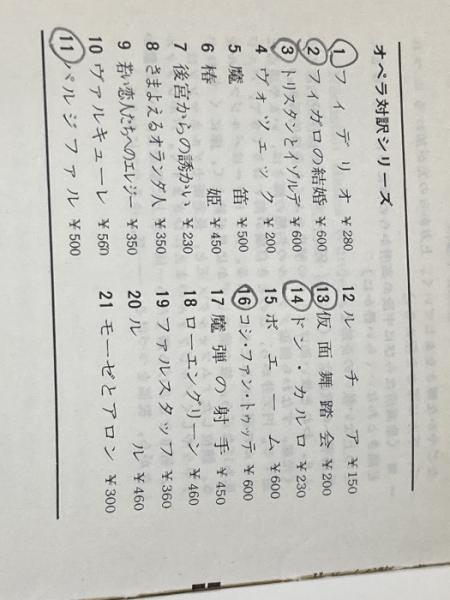 オペラ対訳シリーズ
1 フィデリオ ¥280
2 フィガロの結婚 ¥600
3 トリスタンとイゾルデ ¥600
4 ヴォツェック ¥200
5 魔笛 ¥500
6 椿姫 ¥450
7 後宮からの誘かい ¥230
8 さまよえるオランダ人 ¥350
9 若い恋人たちへのエレジー ¥350
10 ヴァルキューレ ¥560
11 パルジファル ¥500
12 ルチア ¥150
13 仮面舞踏会 ¥200
14 ドン・カルロ ¥230
15 ボエーム ¥600
16 コシ・ファン・トゥッテ ¥600
17 魔弾の射手 ¥450
18 ローエングリーン ¥460
19 ファルスタッフ ¥360
20 ルル ¥460
21 モーゼとアロン ¥300